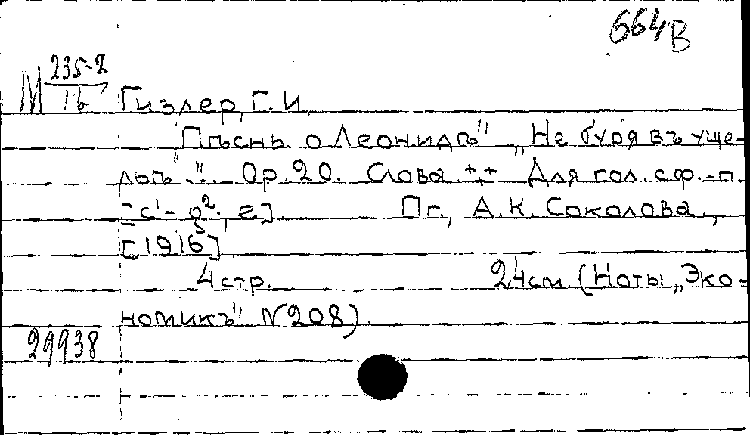 664В
М 235-2
16
Гизлер, Г. И.
"Пѣснь о Леонидѣ" „Не буря въ уще-
льѣ"... Op. 20. Слова *,* Для гол. с ф.-п.
[c¹-g², e]. Пг., А. К. Соколова,
[1916]
4 стр. 24см (Ноты „Эко-
номикъ" N208).
29938